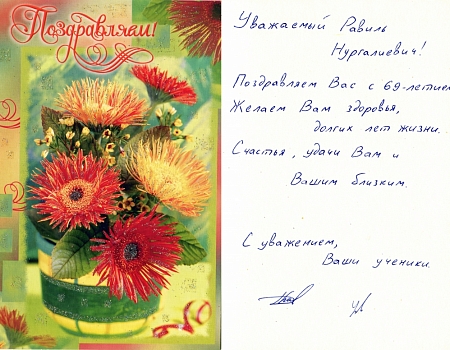 Поздравляем!
Уважаемый Равиль
Нургалиевич!
Поздравляем Вас с 69-летием
Желаем Вам здоровья,
долгих лет жизни.
Счастья, удачи Вам и
Вашим близким.
С уважением,
Ваши ученики.